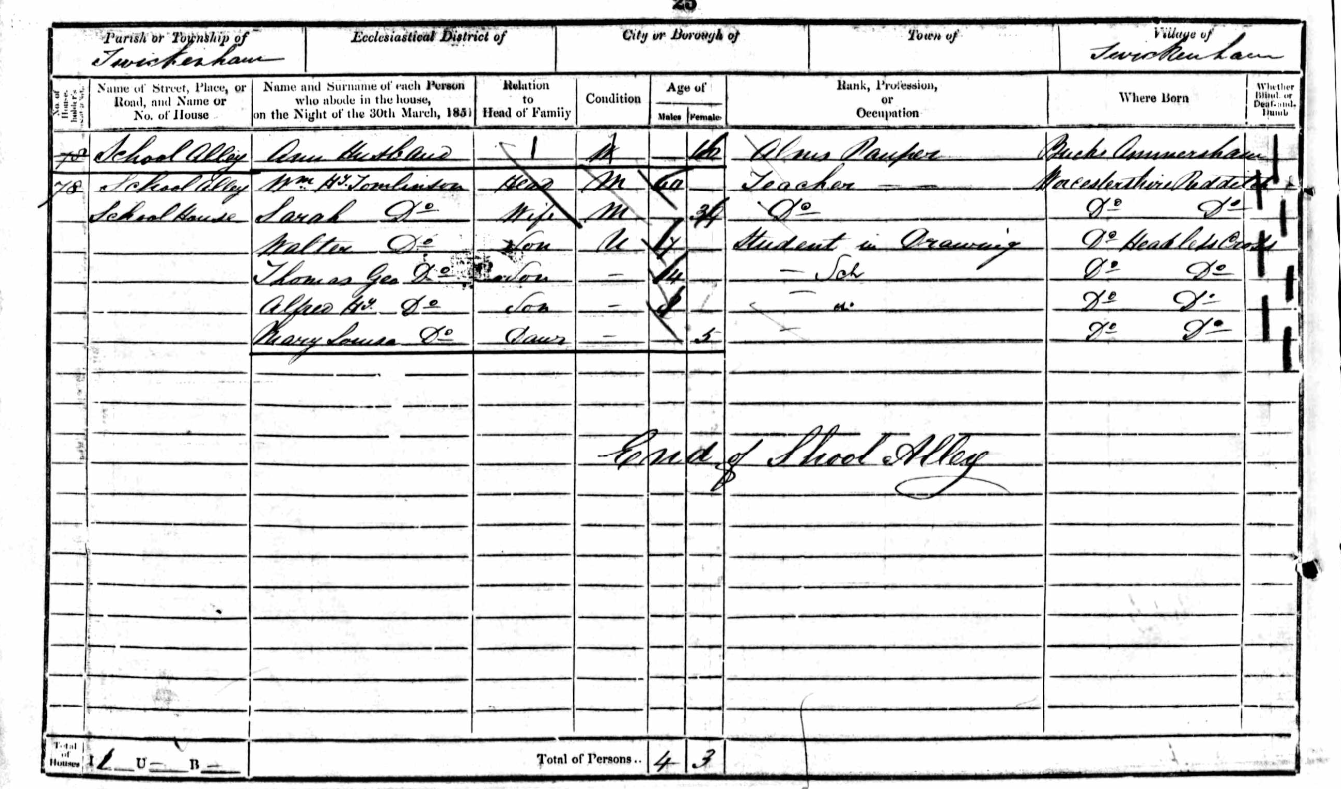 25
Parish or Township of Ecclesiastical District of City or Borough of Town of Village of
Twickenham Twickenham
No. of House- Name of Street, Place, or Road, and Name or No. of House Name and Surname of each Person who abode in the house, on the Night of the 30th March, 1851 Relation to Head of Family Condition Age of Males Females Rank, Profession, or Occupation Where Born Whether Blind, or Deaf-and-Dumb
78 School Alley Ann Husband 1 Alms Pauper Bucks Ammersham
78 School Alley Wm Hy Tomlinson Head M 40 Teacher — — Worcestershire Redditch
School House Sarah Do Wife M Do Do Do
Walter Do Son U 17 Student in Drawing Do Headless Cross
Thomas Geo Do Son — 14 — Sch Do Do
Alfred Hy Do Son — Do Do
Mary Louisa Do Daur — 5 Do Do
End of Shool Alley
Total of Houses I 1 U — B — Total of Persons.. 4 3